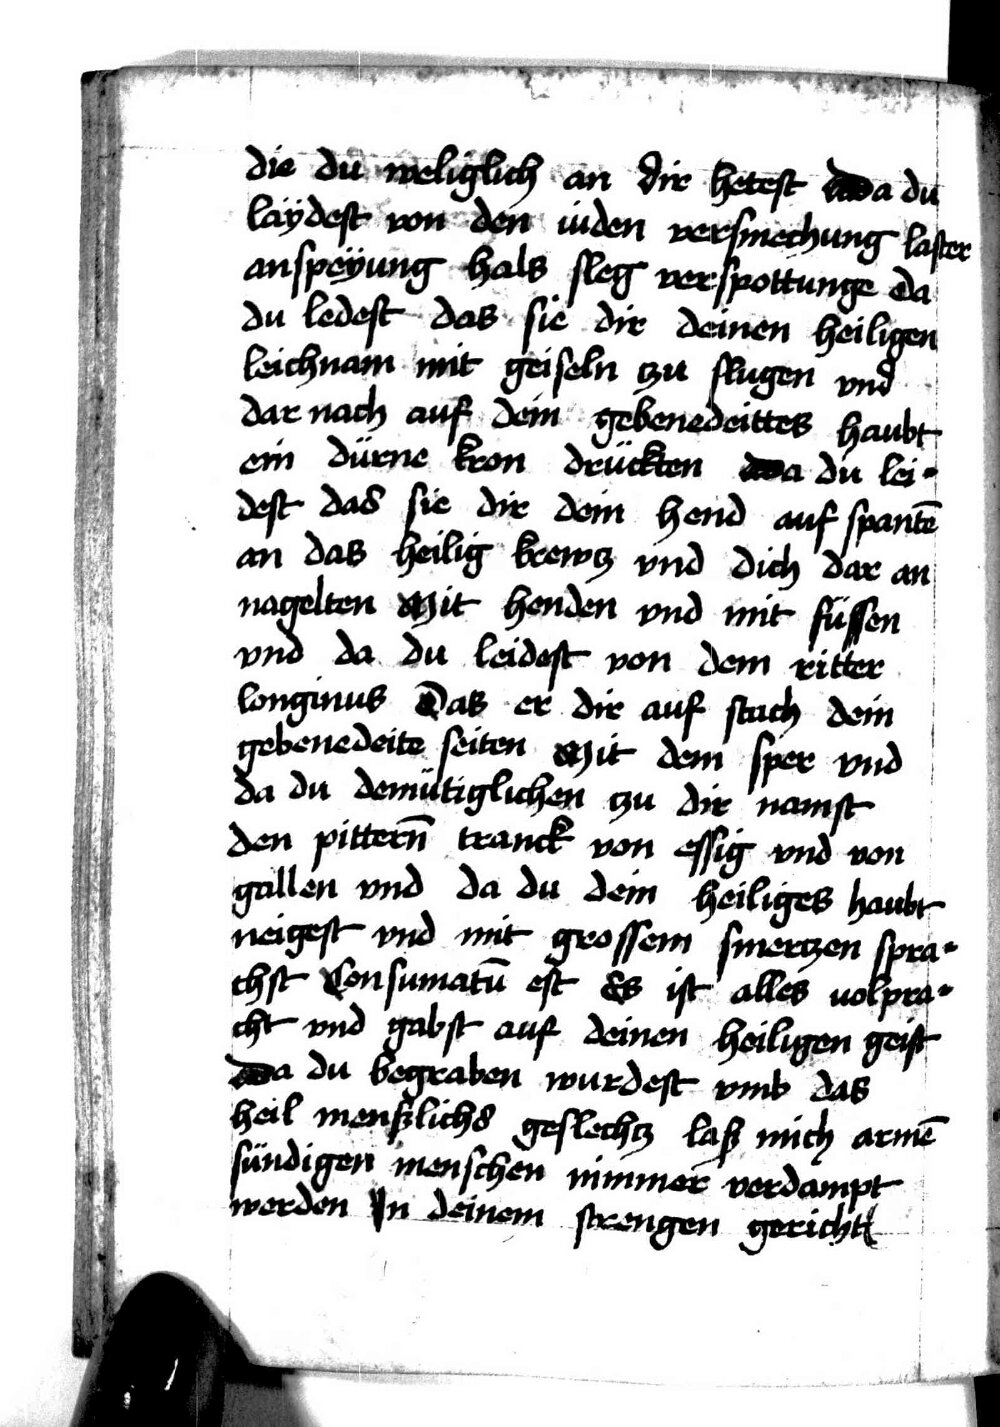 die du weliglich an dir hetest da du
laydest von den iuden versmechung laster
anspeyung hals sleg verspottunge Da
du ledest das sie dir deinen heiligen
leichnam mit geiseln tzu slugen vnd
dar nach auf dein gebenedeittes haubt
ein dürne kron drückten da du lei-
dest das sie dir dein hend auf spantē
an das heilig krewtz vnd dich dar an
nagelten Mit henden vnd mit füssen
vnd da du leidest von dem ritter
longinus Das er dir auf stach dein
gebenedeite seiten Mit dem sper vnd
da du demütiglichen tzu dir namst
den pittern̄ tranck von essig vnd von
gallen vnd da du dein heiliges haubt
neigest vnd mit grossem smertzen spra-
chst Consumatū est Es ist alles volpra-
cht vnd gabst auf deinen heiligen geist
Da du begraben wurdest vmb das
heil menßlichs geslechtz laß mich armē
sündigen menschen nimmer verdampt
werden In deinem strengen gericht